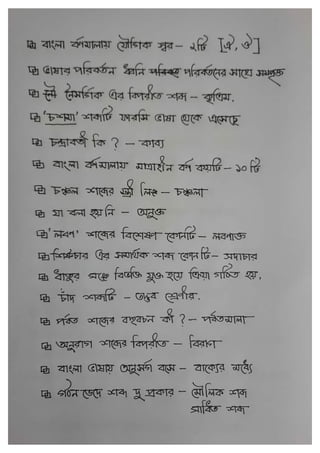 বাংলা বর্ণমালায় যৌগিক স্বর – ২টি [ঐ, ঔ]
ভাষার পরিবর্তন ধ্বনি পরিবর্তনের সাথে সম্পৃক্ত
নৈসর্গিক এর বিপরীত শব্দ – কৃত্রিম.
'চশমা' শব্দটি ফারসি ভাষা থেকে এসেছে
চন্দ্রাবতী কি ? – কাব্য
বাংলা বর্ণমালায় মাত্রাহীন বর্ণ কয়টি – ১০ টি
চঞ্চল শব্দের স্ত্রী লিঙ্গ – চঞ্চলা
যা বলা হয়নি – অনুক্ত
'লবণ' শব্দের বিশেষণ কোনটি – লবণাক্ত
শিষ্টাচার এর সমার্থক শব্দ কোনটি – সদাচার
ধাতুর সঙ্গে বিভক্তি যুক্ত হয়ে ক্রিয়া গঠিত হয়.
চাঁদ শব্দটি – তদ্ভব শ্রেণীর.
পর্বত শব্দের বহুবচন কী ? – পর্বতমালা
অনুরাগ শব্দের বিপরীত – বিরাগ
বাংলা ভাষায় অনুসর্গ বসে – বাক্যের মধ্যে
গঠনভেদে শব্দ দু প্রকার – মৌলিক শব্দ
সাধিত শব্দ